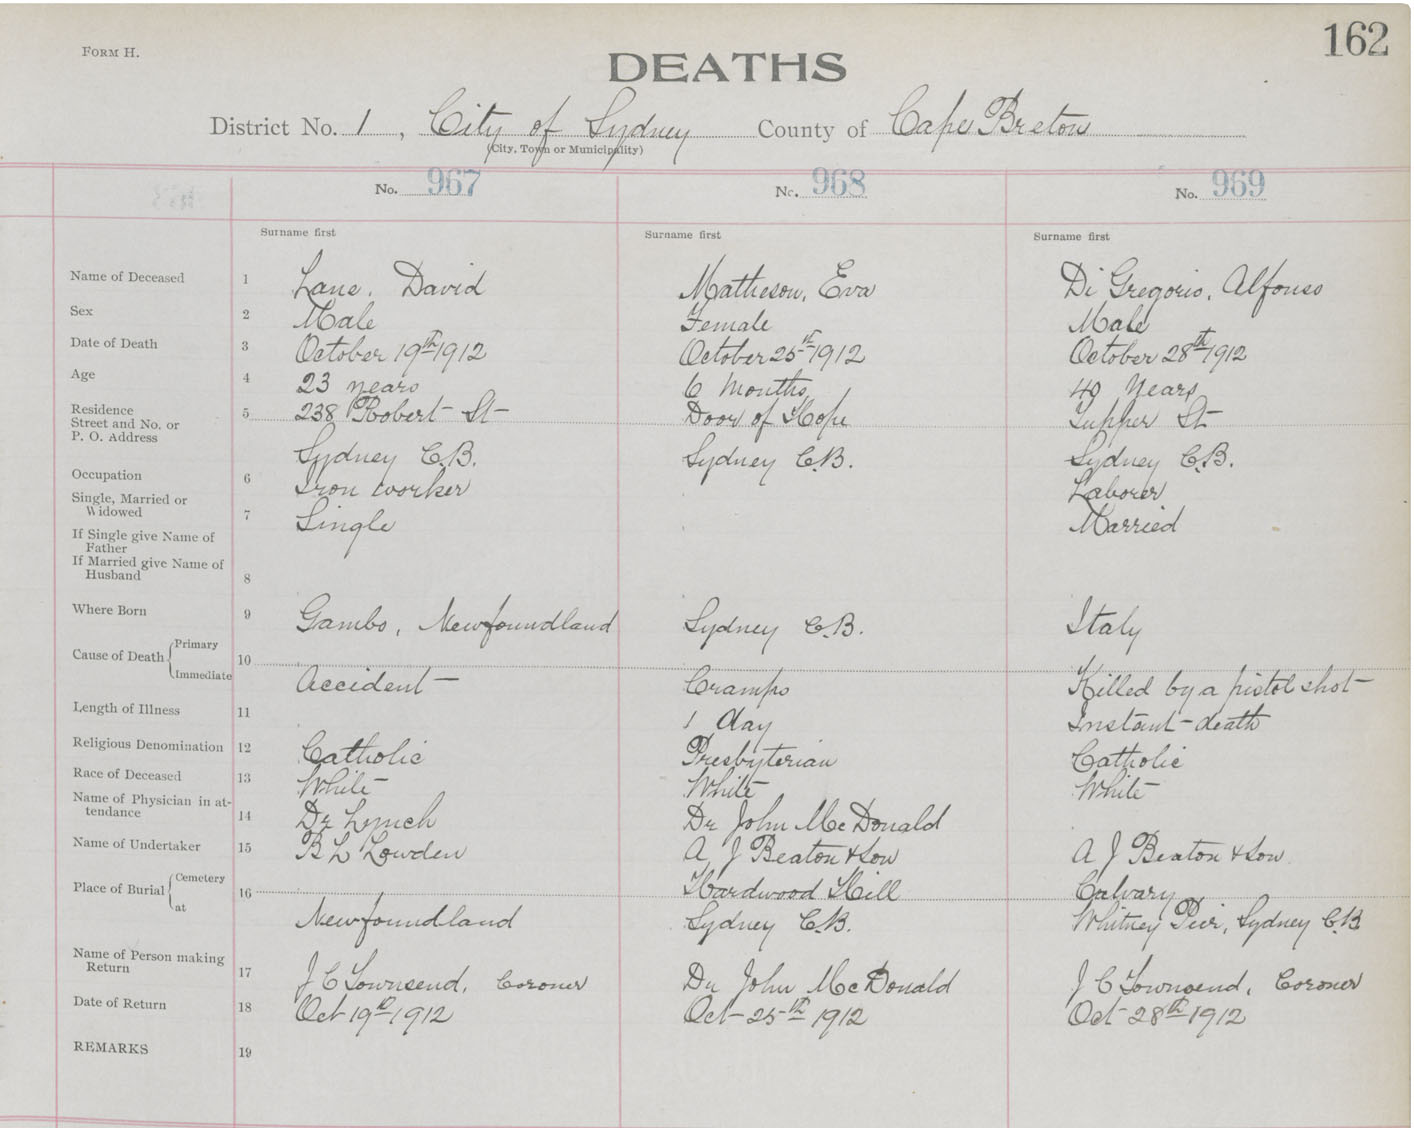 162
FORM H.
DEATHS
District No. 1, City of Sydney County of Cape Breton
(City, Town or Municipality)
No. 967 No. 968 No. 969
Surname first Surname first Surname first
Name of Deceased 1 Lane, David Matheson, Eva Di Gregorio, Alfonso
Sex 2 Male Female Male
Date of Death 3 October 19th 1912 October 25th 1912 October 28th 1912
Age 4 23 years 6 Months 40 Years
Residence Street and No. or P. O. Address 5 238 Robert St Door of Hope Tupper St
Sydney C.B. Sydney C.B. Sydney C.B.
Occupation 6 Iron worker Laborer
Single, Married or Widowed 7 Single Married
If Single give Name of Father
If Married give Name of Husband 8
Where Born 9 Gambo, Newfoundland Sydney C.B. Italy
Cause of Death { Primary
Immediate 10 Accident Cramps Killed by a pistol shot
Length of Illness 11 1 day Instant death
Religious Denomination 12 Catholic Presbyterian Catholic
Race of Deceased 13 White White White
Name of Physician in attendance 14 Dr Lynch Dr John McDonald
Name of Undertaker 15 B L Lowden A J Beaton & Son A J Beaton & Son
Place of Burial { Cemetery 16 Hardwood Hill Calvary
at Newfoundland Sydney C.B. Whitney Pier, Sydney C.B.
Name of Person making Return 17 J C Townsend, Coroner Dr John McDonald J C Townsend, Coroner
Date of Return 18 Oct 19th 1912 Oct 25th 1912 Oct 28th 1912
REMARKS 19